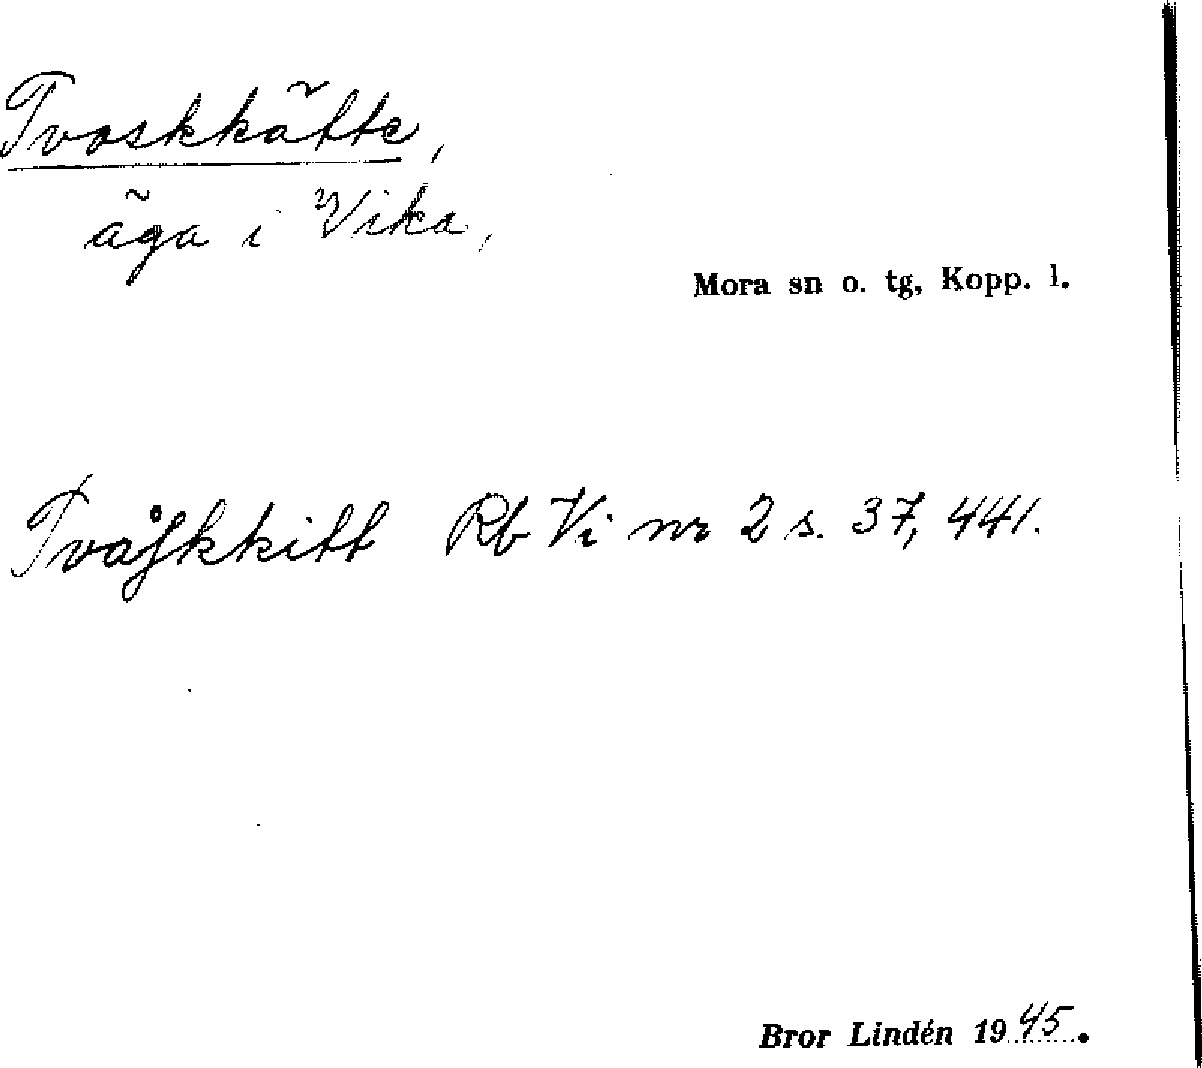 Tvoskkätte,
äga i Vika,
Mora sn o. tg, Kopp. l.
Tvåskkitt Rb Vi nr 2 s. 37, 441.
Bror Lindén 1945.